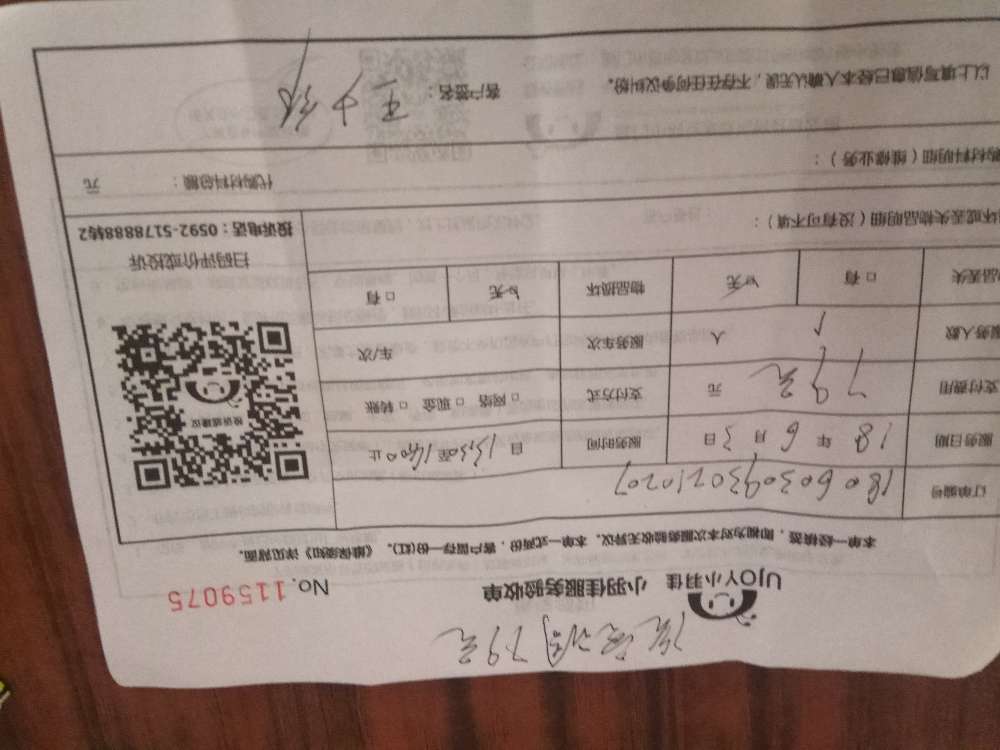 79元
UJOY小羽佳 小羽佳服务验收单 No.1159075
本单一经填签，即视为对本次服务验收无异议。本单一式两份，客户留存一份(红)。《维保须知》详见背面。
订单编号 1806030930210207
服务日期 18年6月3日 服务时间 自13:30至14:00止
支付费用 79元 元 支付方式 □网络 □现金 □转账
服务人数 1 人 服务车次 车/次
品丢失 □有 ☑无 物品损坏 ☑无 □有
投诉或建议
扫码评价或投诉
投诉电话：0592-5178888转2
坏或丢失物品明细（没有可不填）：
购材料明细（维修业务）： 代购材料总额： 元
以上填写信息已经本人确认无误，不存在任何争议纠纷。 客户签名：